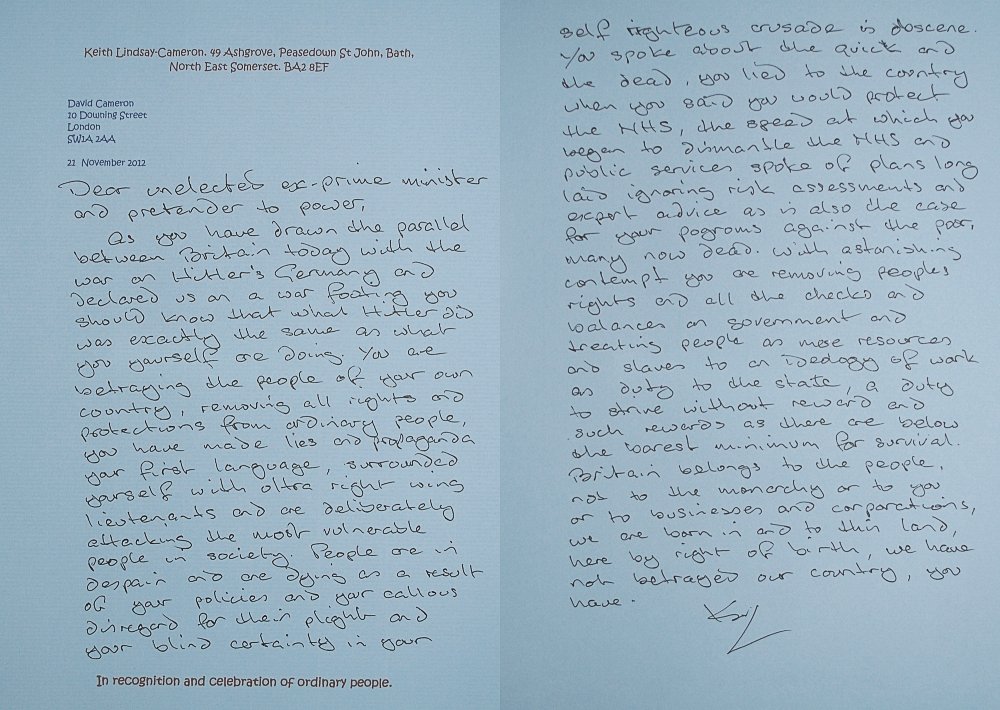 Keith Lindsay-Cameron. 49 Ashgrove, Peasedown St John, Bath,
North East Somerset. BA2 8EF
David Cameron
10 Downing Street
London
SW1A 2AA
21 November 2012
Dear unelected ex-prime minister
and pretender to power,
As you have drawn the parallel
between Britain today with the
war on Hitler's Germany and
declared us on a war footing you
should know that what Hitler did
was exactly the same as what
you yourself are doing. You are
betraying the people of your own
country, removing all rights and
protections from ordinary people,
you have made lies and propaganda
your first language, surrounded
yourself with ultra right wing
lieutenants and are deliberately
attacking the most vulnerable
people in society. People are in
despair and are dying as a result
of your policies and your callous
disregard for their plight and
your blind certainty in your
In recognition and celebration of ordinary people.
self righteous crusade is obscene.
You spoke about the quick and
the dead, you lied to the country
when you said you would protect
the NHS, the speed at which you
began to dismantle the NHS and
public services spoke of plans long
laid ignoring risk assessments and
expert advice as is also the case
for your pogroms against the poor,
many now dead. With astonishing
contempt you are removing peoples
rights and all the checks and
balances on government and
treating people as mere resources
and slaves to an ideology of work
as duty to the state, a duty
to strive without reward and
such rewards as there are below
the barest minimum for survival.
Britain belongs to the people,
not to the monarchy or to you
or to businesses and corporations,
we are born in and to this land,
here by right of birth, we have
not betrayed our country, you
have.